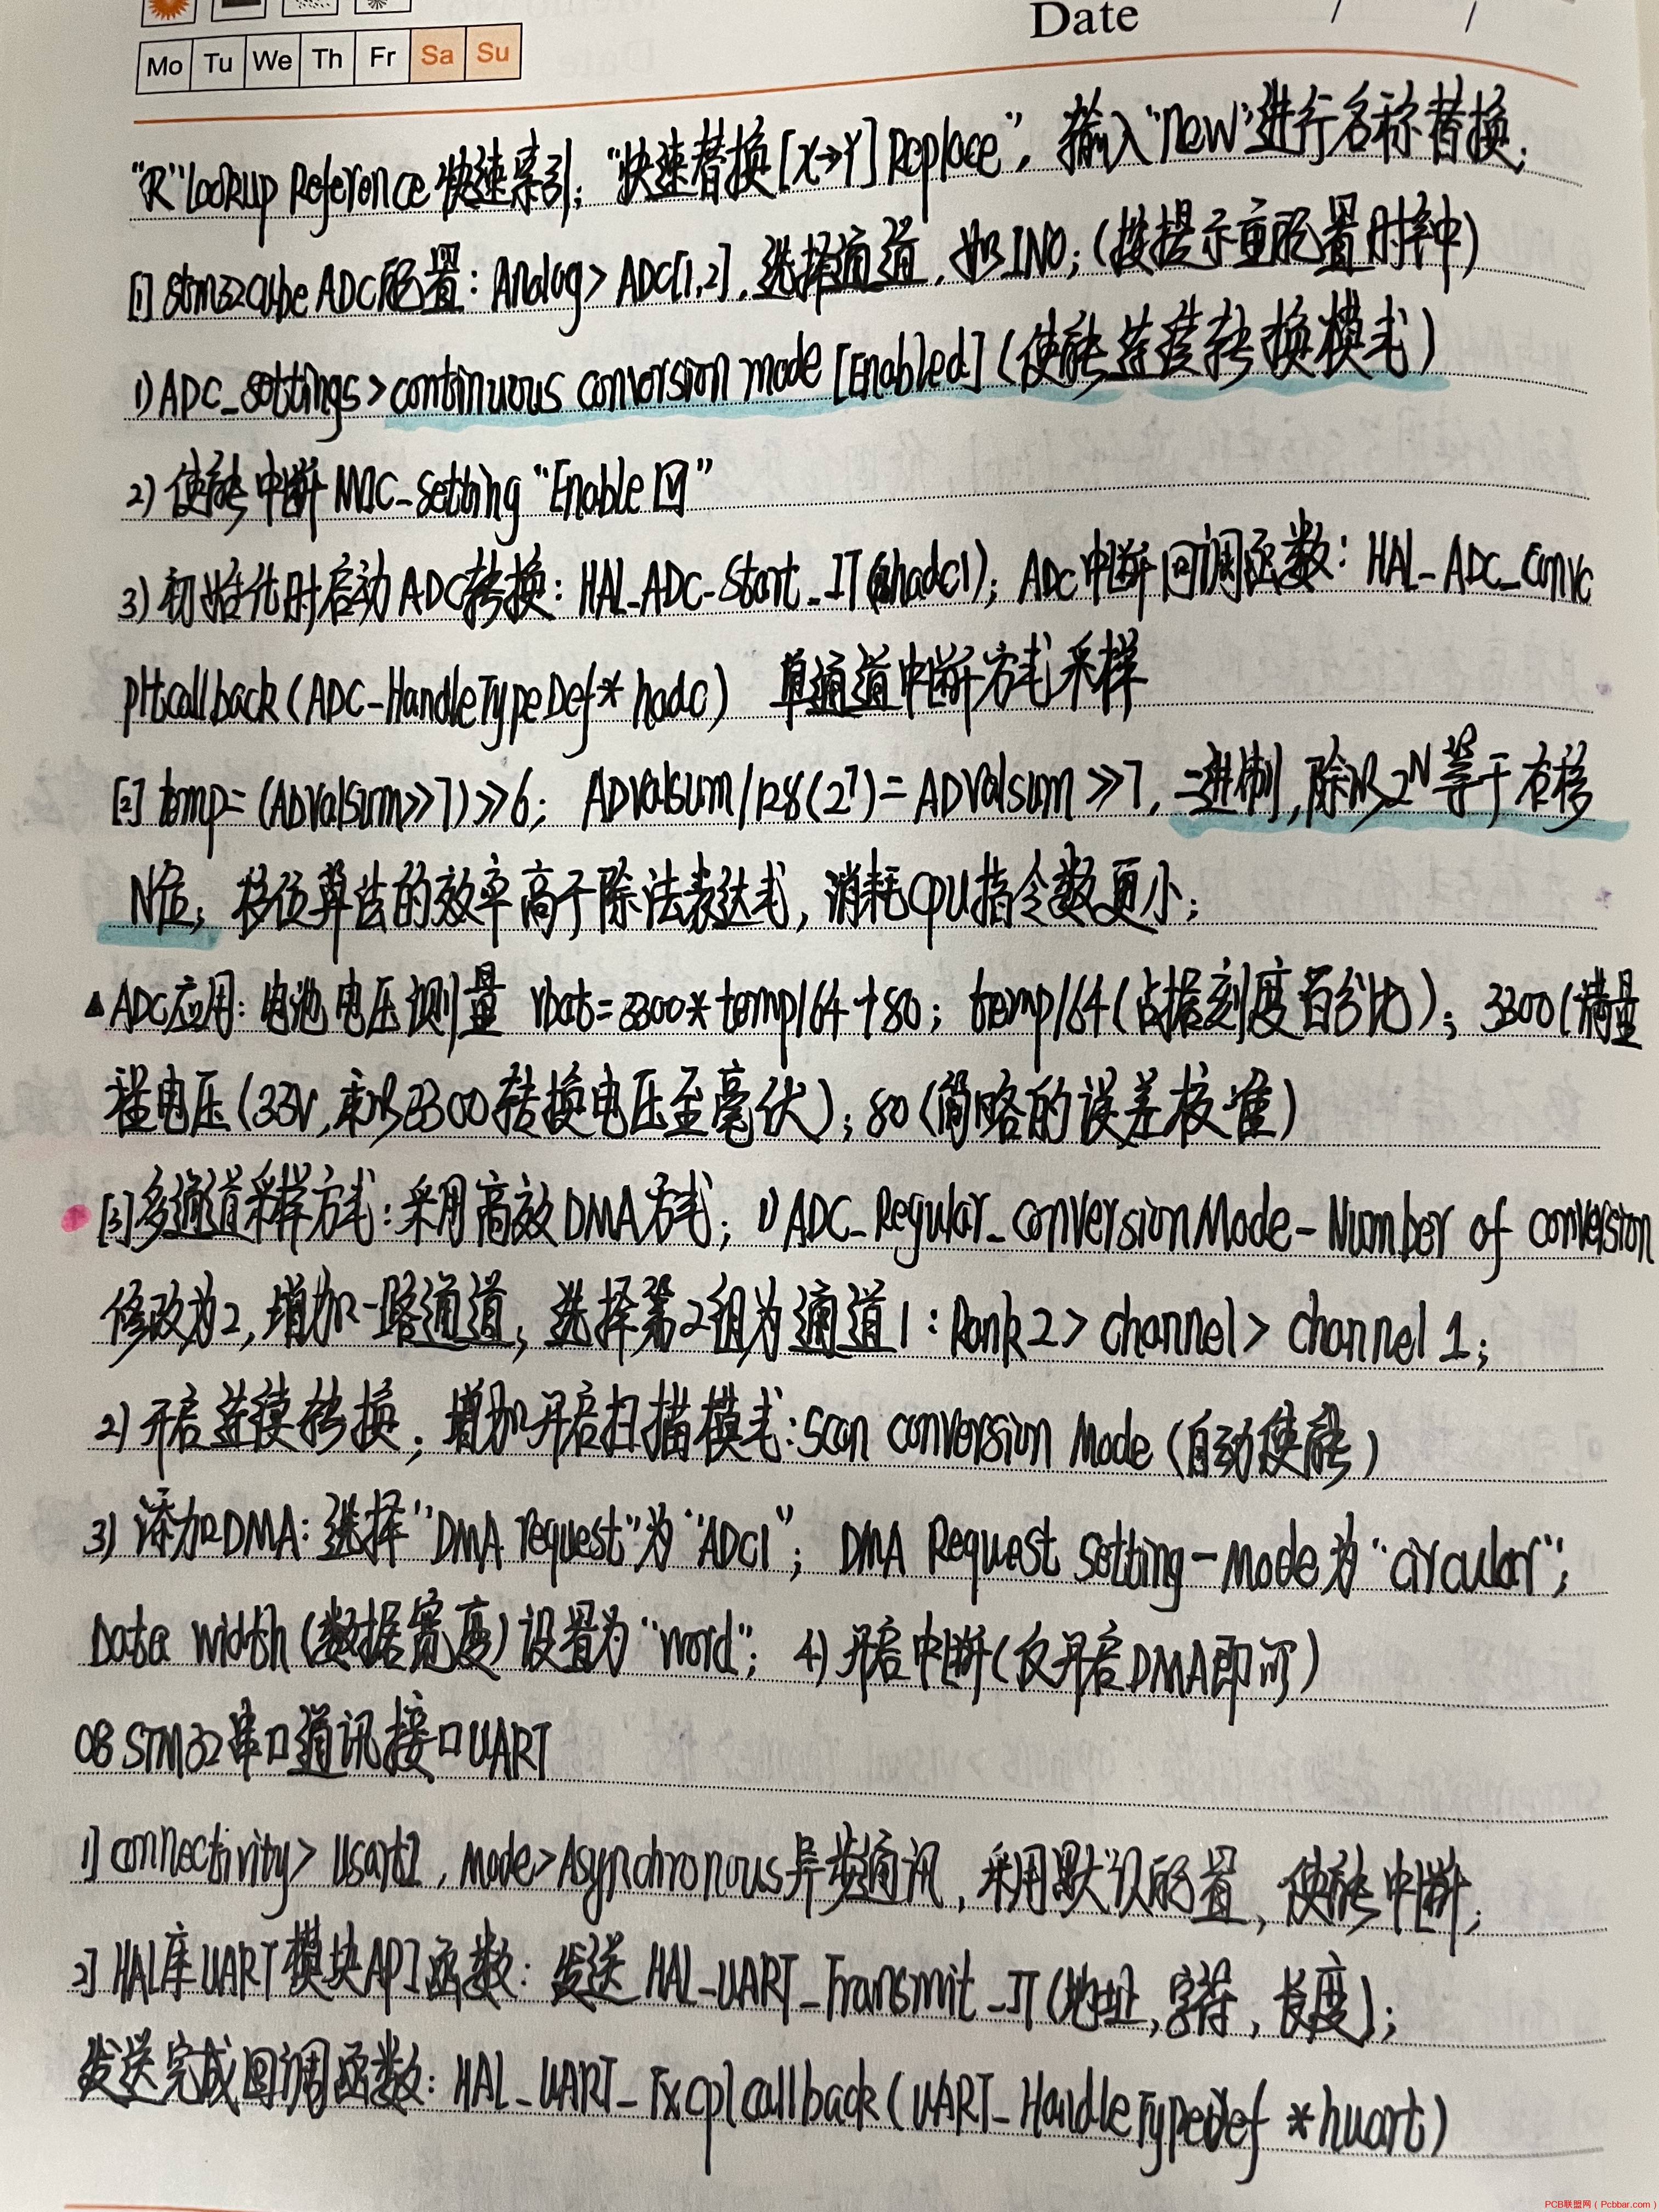 Date / /
Mo Tu We Th Fr Sa Su
"R"lookup Reference 快速索引; "快速替换[X→Y]Replace", 输入"new"进行名称替换;
[1] stm32cube ADC配置: Analog> ADC[1,2], 选择通道, 如IN0; (按提示重配置时钟)
1) ADC_settings>continuous conversion mode [Enabled] (使能连续转换模式)
2) 使能中断 NVIC_setting "Enable ☑"
3) 初始化时启动ADC转换: HAL_ADC_Start_IT(&hadc1); ADC中断回调函数: HAL_ADC_Convc
pltcallback (ADC_HandleTypeDef* hadc) 单通道中断方式采样
[2] temp= (ADValsum>>7)>>6; ADValsum/128(2⁷)= ADValsum >>7, 二进制, 除以2ᴺ等于右移
N位; 移位算法的效率高于除法表达式, 消耗CPU指令数更小;
▲ADC应用: 电池电压测量 vbat=3300*temp/64+80; temp/64(占据刻度百分比); 3300(满量
程电压(3.3V, 乘以3300转换电压至毫伏); 80(简略的误差校准)
[3]多通道采样方式: 采用高效DMA方式; 1) ADC_Regular_ConversionMode-Number of conversion
修改为2, 增加一路通道; 选择第2组为通道1: Rank2> channel> channel 1;
2) 开启连续转换, 增加开启扫描模式: Scan conversion Mode (自动使能)
3) 添加DMA: 选择"DMA request"为"ADC1"; DMA Request Setting-Mode为"circular";
Data width (数据宽度) 设置为"word"; 4) 开启中断(仅开启DMA即可)
08 STM32串口通讯接口UART
1] connectivity> Usart2, Mode>Asynchronous异步通讯, 采用默认配置, 使能中断;
2] HAL库UART模块API函数: 发送 HAL_UART_Transmit_IT(地址, 字符, 长度);
发送完成回调函数: HAL_UART_Txcplcallback (UART_HandleTypeDef *huart)
PCB联盟网(Pcbbar.com)